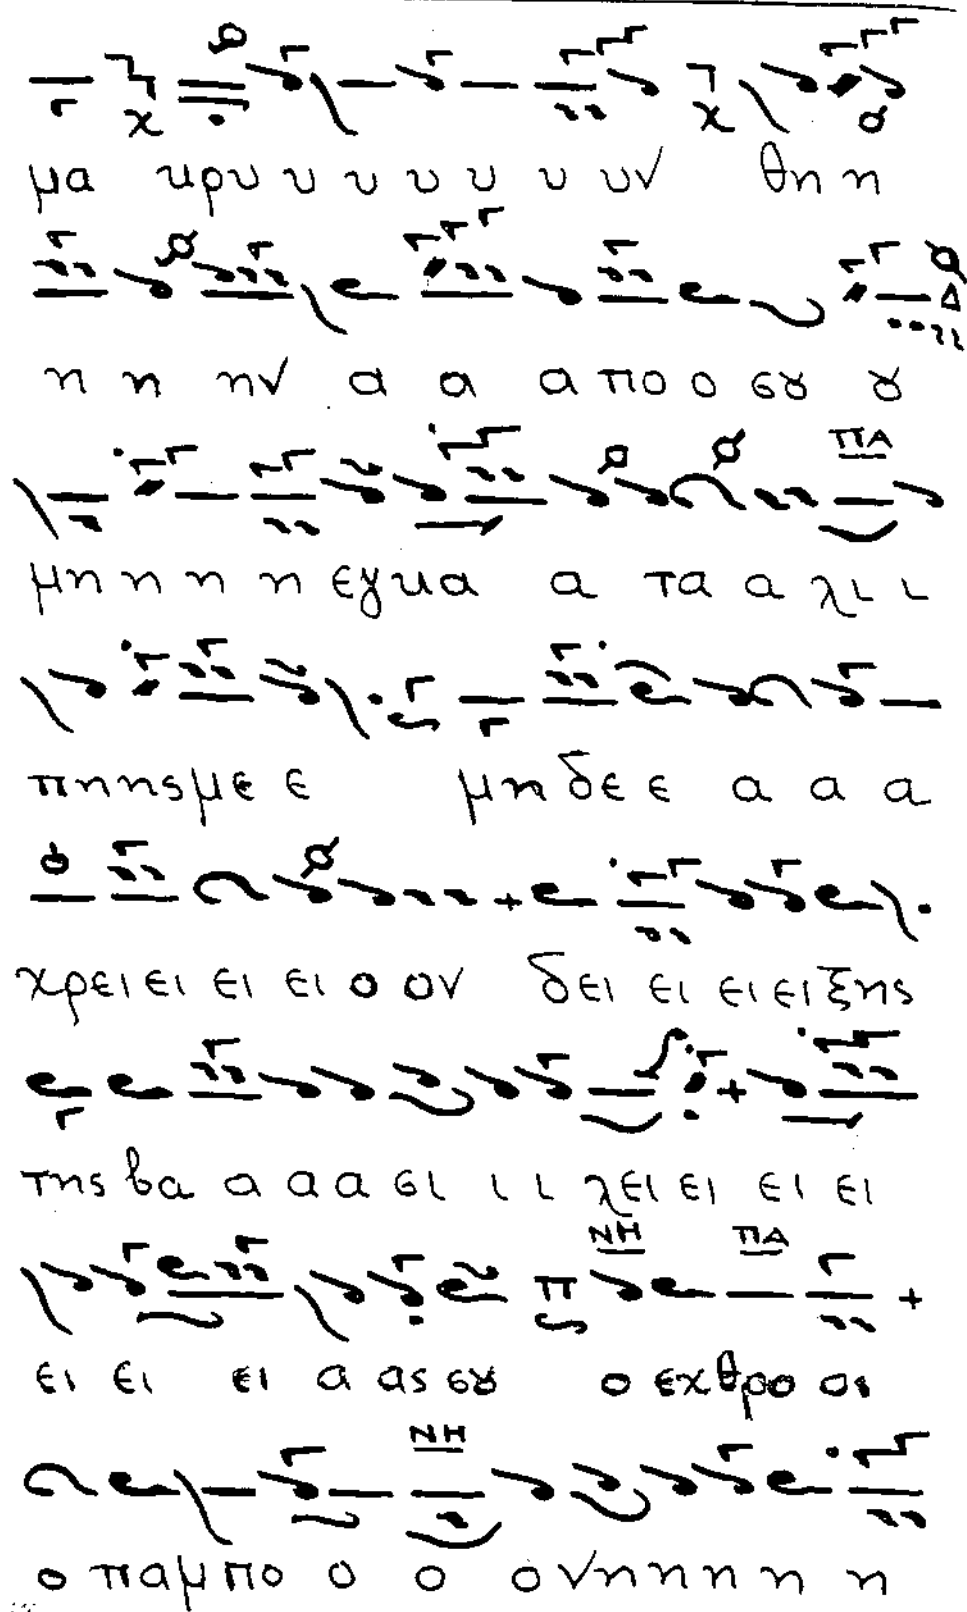 μα κρυ υ υ υ υ υ υν θη η
η η ην α α α πο ο σȣ ȣ
μη η η η εγκα α τα α λι ι
πηησμε ε μηδε ε α α α
χρειει ει ει ο ον δει ει ειειξης
της βα α α α σι ι ι λει ει ει ει
ΝΗ ΠΑ
ει ει ει α ας σȣ ο εχθρο ος
ΝΗ
ο παμπο ο ο ονη η η η η